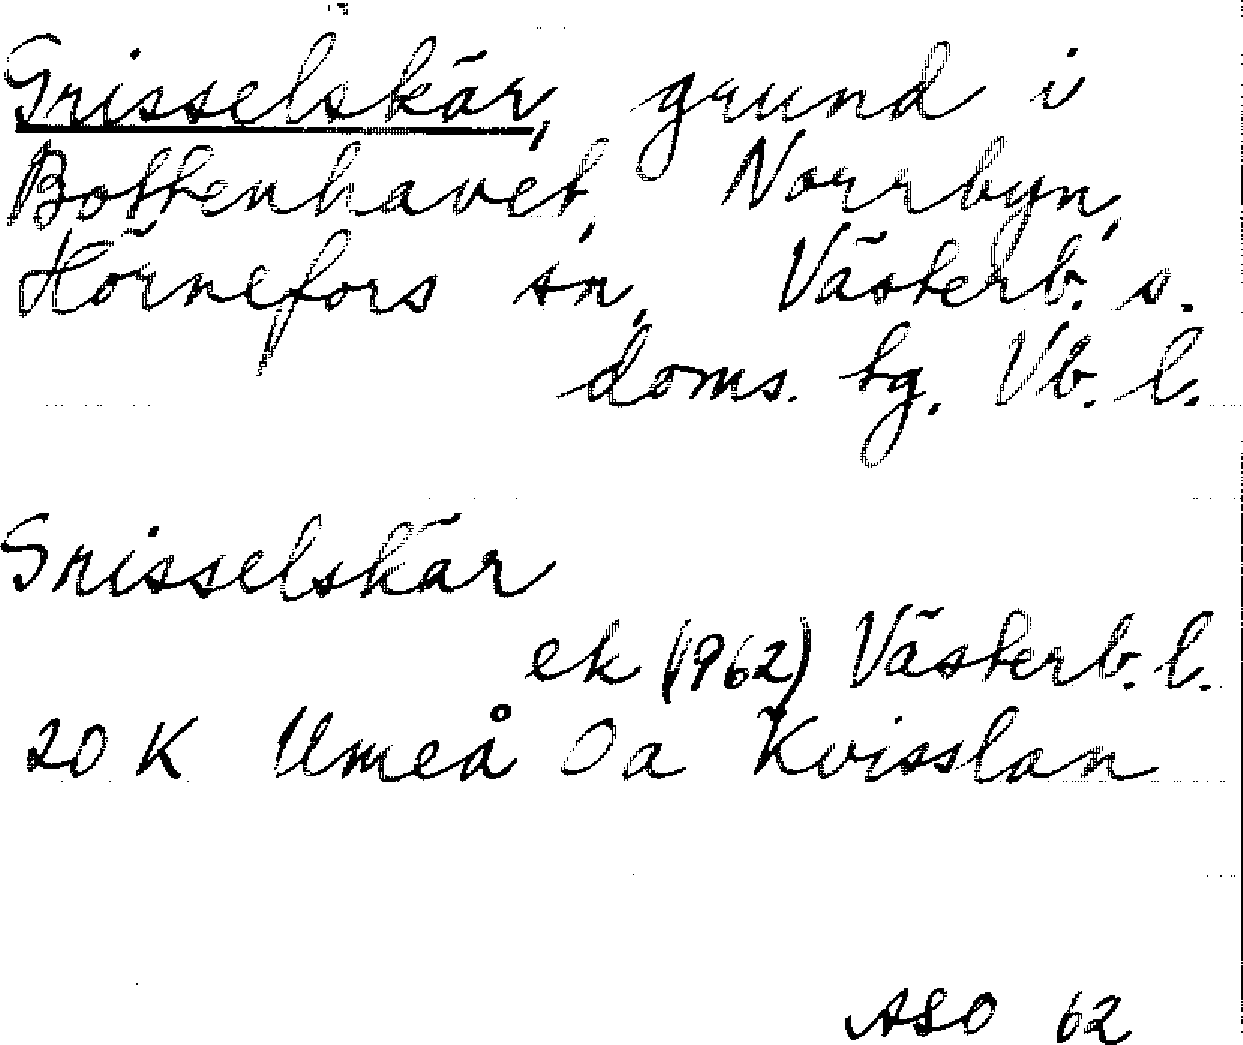 Grisselskär, grund i
Bottenhavet, Norrbyn,
Hörnefors sn, Västerb. s.
doms. tg. Vb. l.
Grisselskär
ek (1962) Västerb. l.
20 K Umeå Oa Kvisslan
ASO 62